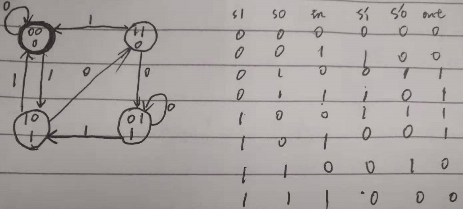 0
00
0
1
11
0
1
1
0
0
0
10
1
1
01
1
s1 s0 in s'1 s'0 out
0 0 0 0 0 0
0 0 1 1 0 0
0 1 0 0 1 1
0 1 1 1 0 1
1 0 0 1 1 1
1 0 1 0 0 1
1 1 0 0 1 0
1 1 1 0 0 0